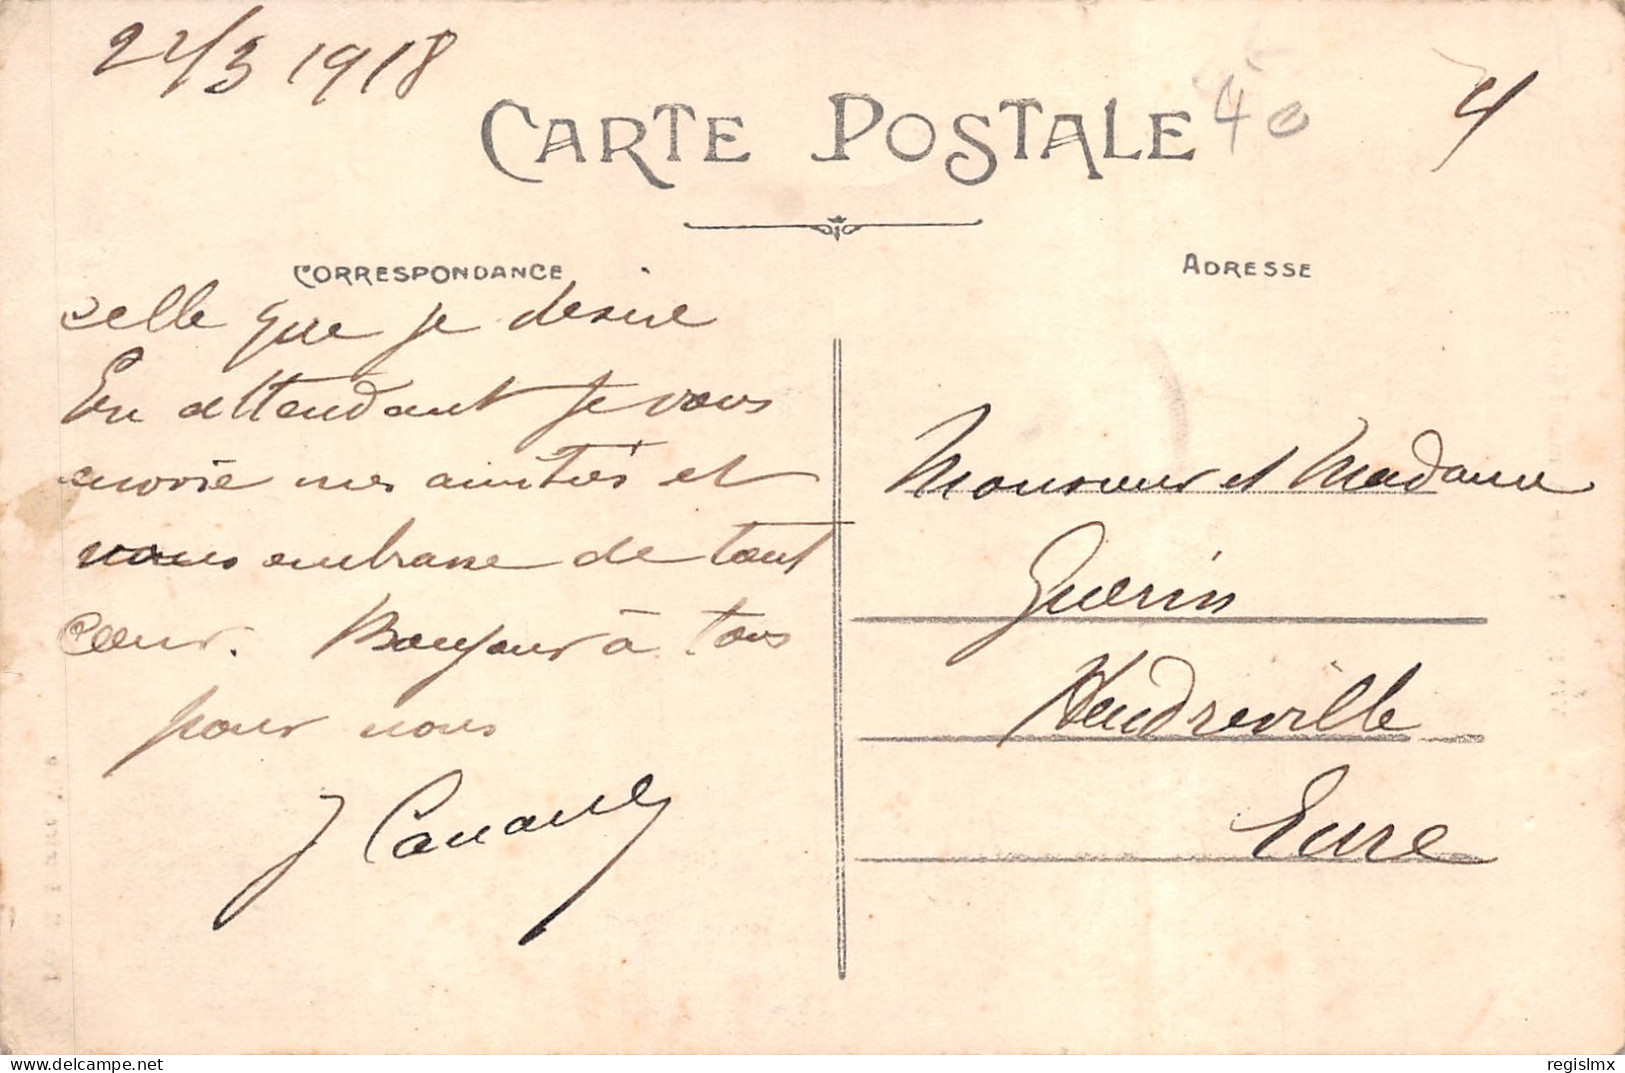 22/3 1918
4
40
CARTE POSTALE
CORRESPONDANCE
ADRESSE
celle que je desire
En attendant je vous
envoie mes amitiés et
vous embrasse de tout
cœur. Bonjour à tous
pour nous
J
Monsieur et Madame
Guerin
Heudreville
Eure
delcampe.net
regislmx